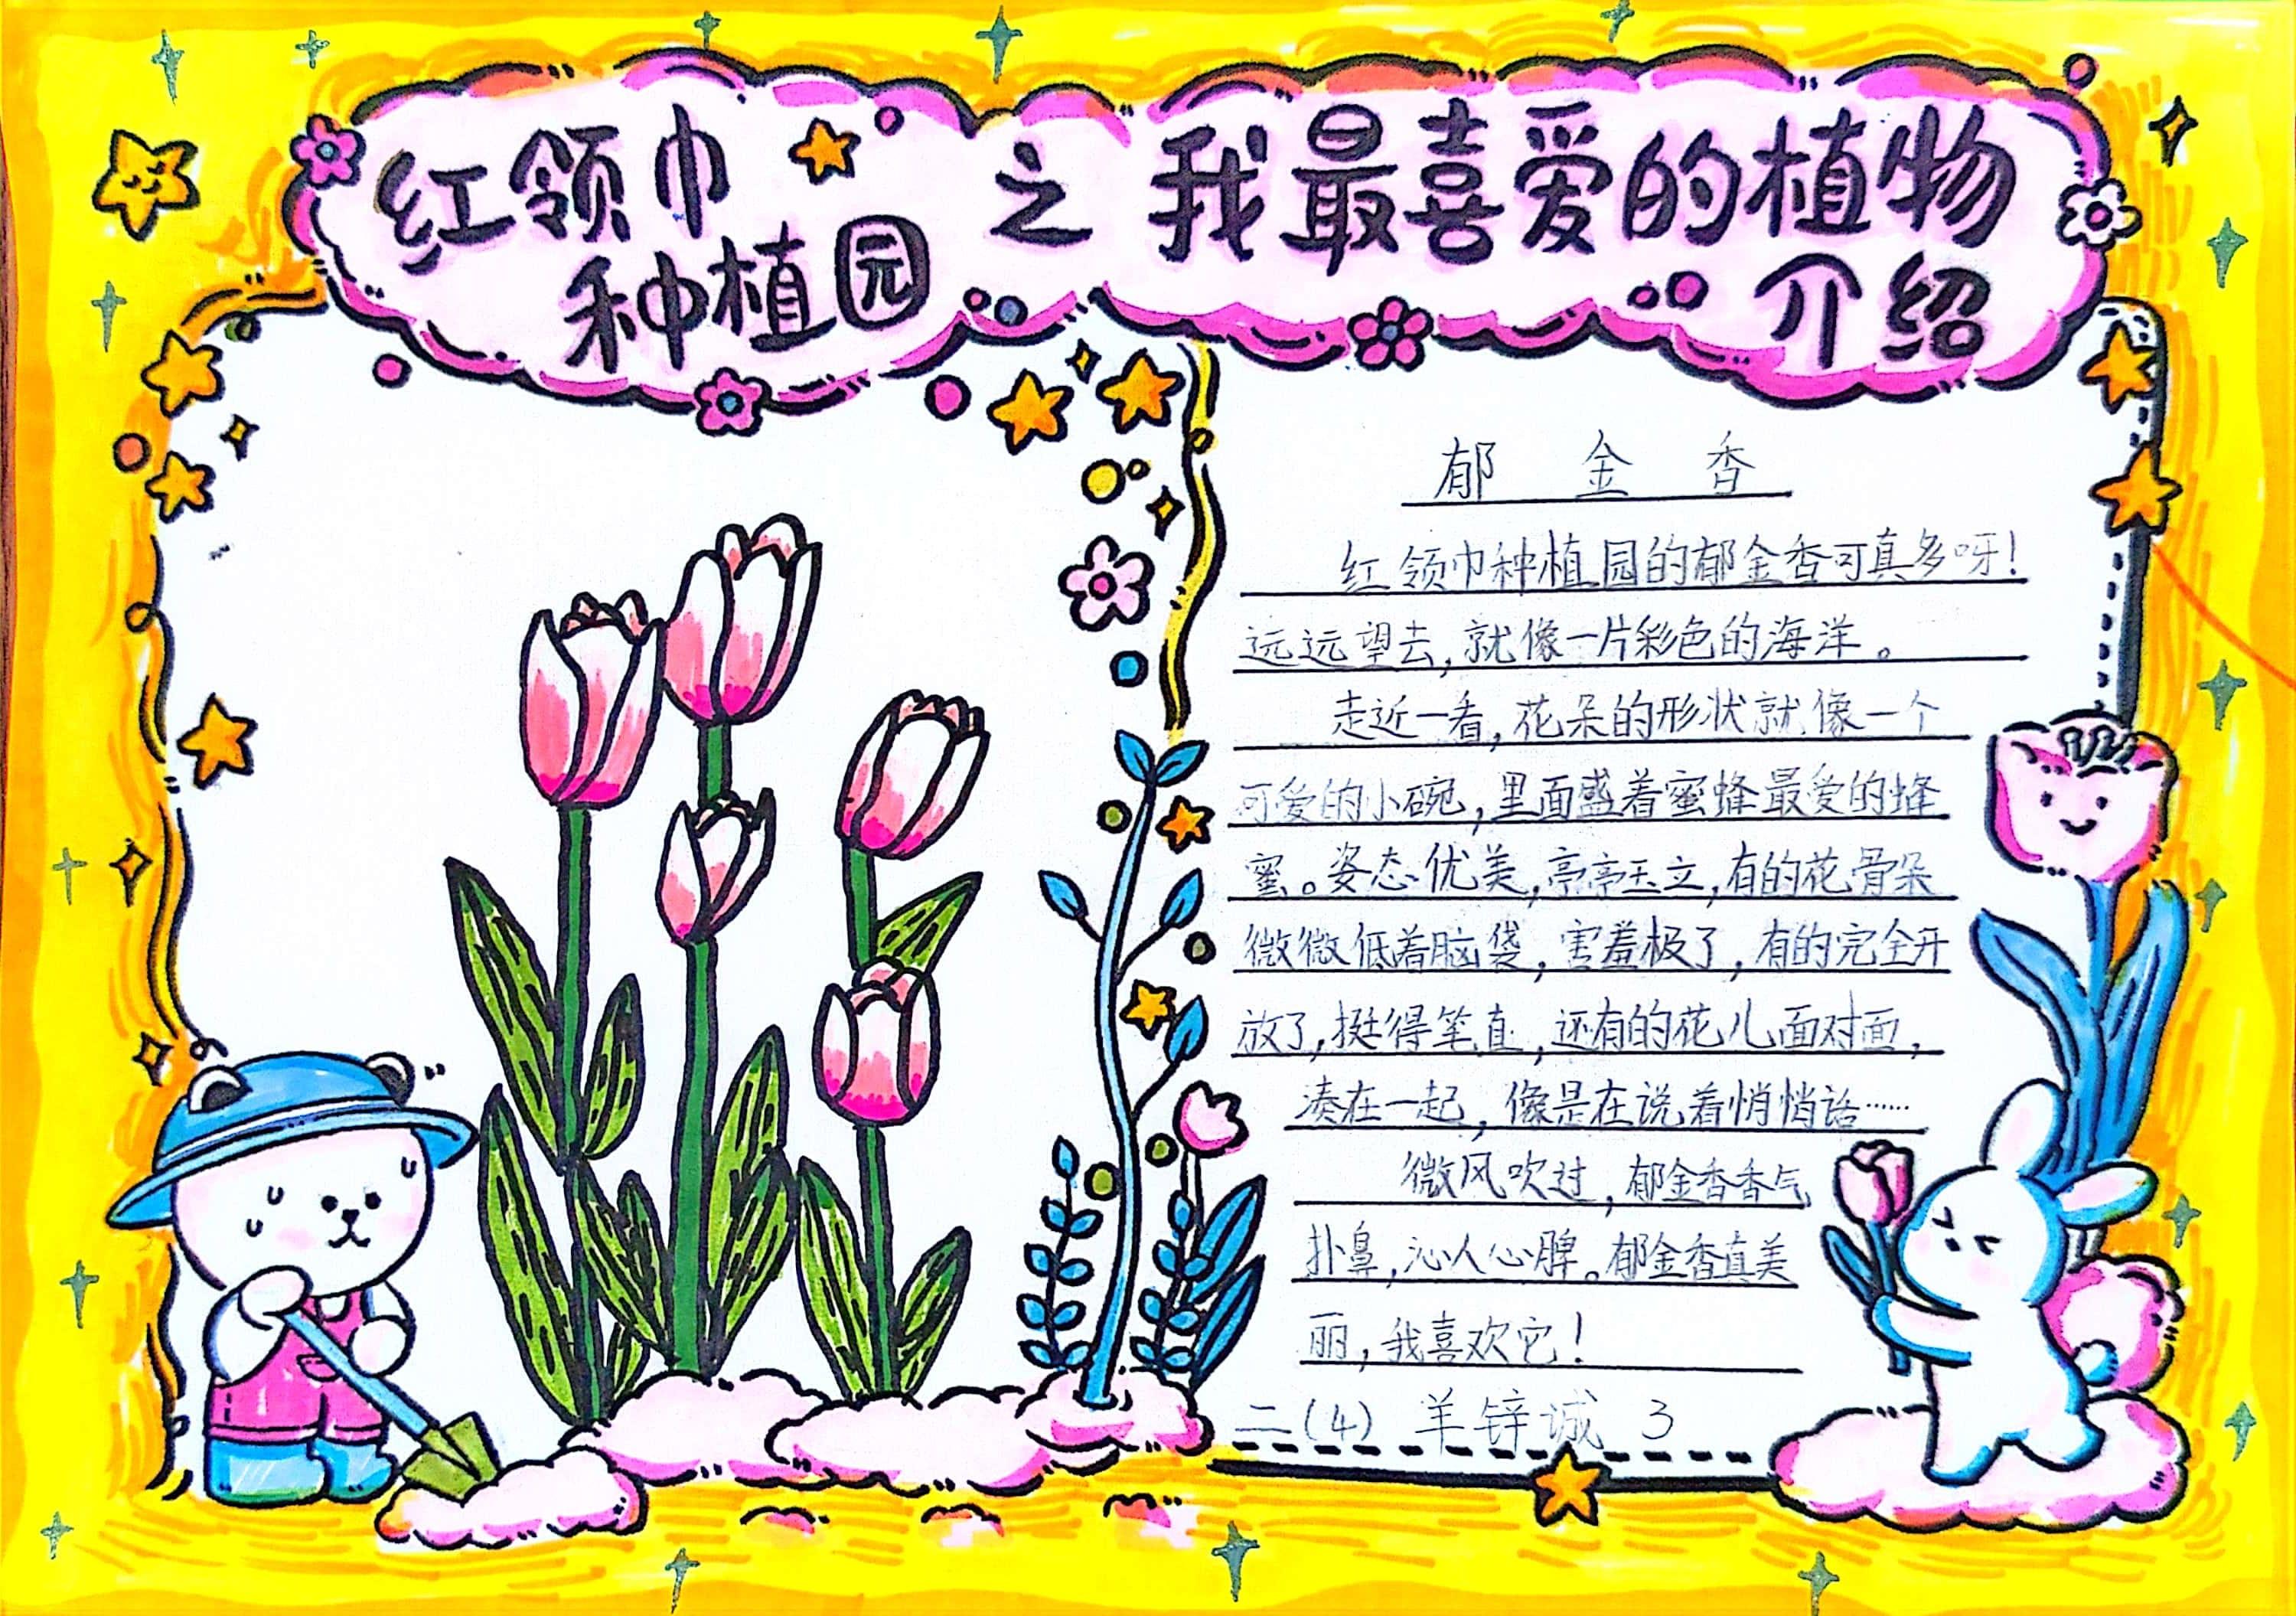 红领巾
种植园
之
我最喜爱的植物
介绍
郁金香
红领巾种植园的郁金香可真多呀!
远远望去,就像一片彩色的海洋。
走近一看,花朵的形状就像一个
可爱的小碗,里面盛着蜜蜂最爱的蜂
蜜。姿态优美,亭亭玉立,有的花骨朵
微微低着脑袋,害羞极了,有的完全开
放了,挺得笔直,还有的花儿面对面,
凑在一起,像是在说着悄悄话……
微风吹过,郁金香香气
扑鼻,沁人心脾。郁金香真美
丽,我喜欢它!
二(4) 羊锌诚 3